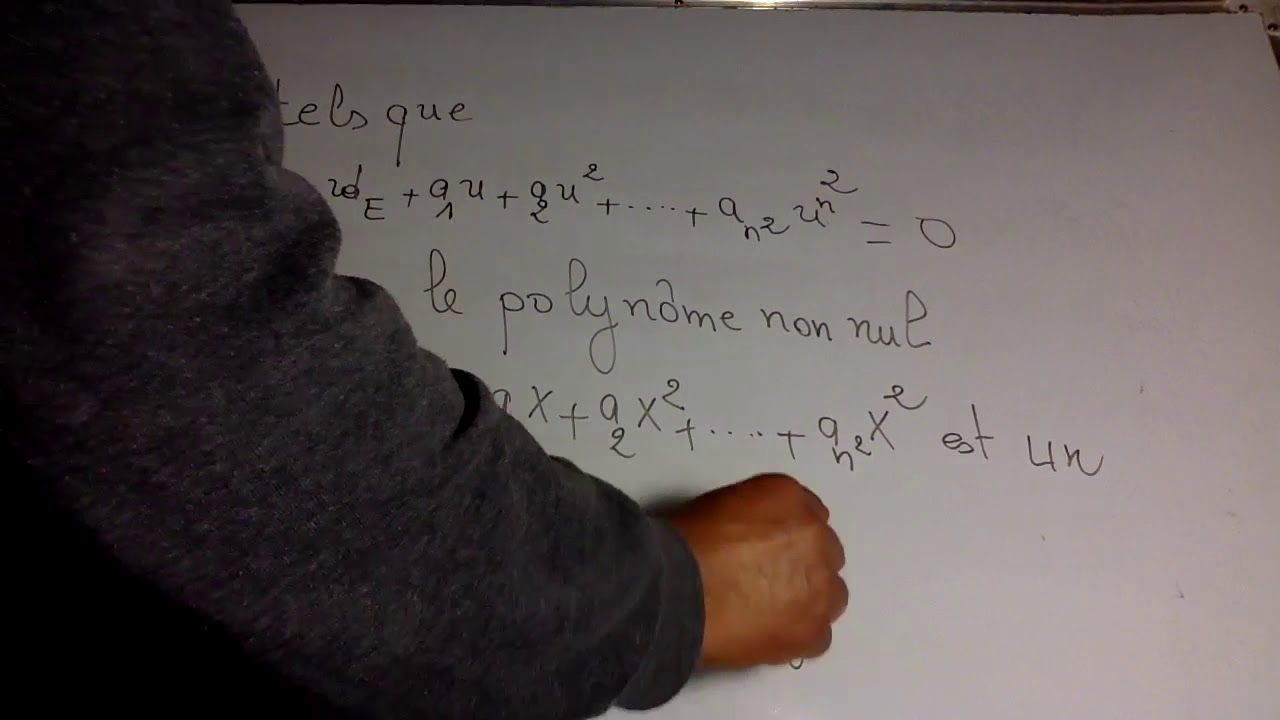 tels que
id_E + a_1 u + a_2 u^2 + ..... + a_{n^2} u^{n^2} = 0
le polynôme non nul
X + a_2 X^2 + ..... + a_{n^2} X^2 est un